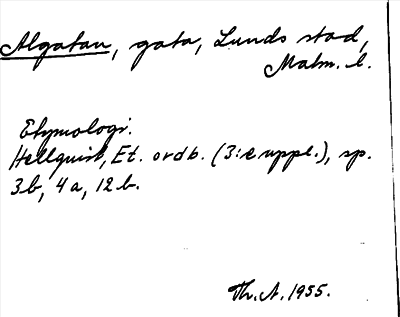 Algatan, gata, Lunds stad,
Malm. l.
Etymologi.
Hellquist, Et. ordb. (3:e uppl.), sp.
3b, 4a, 12b.
Th. A. 1955.